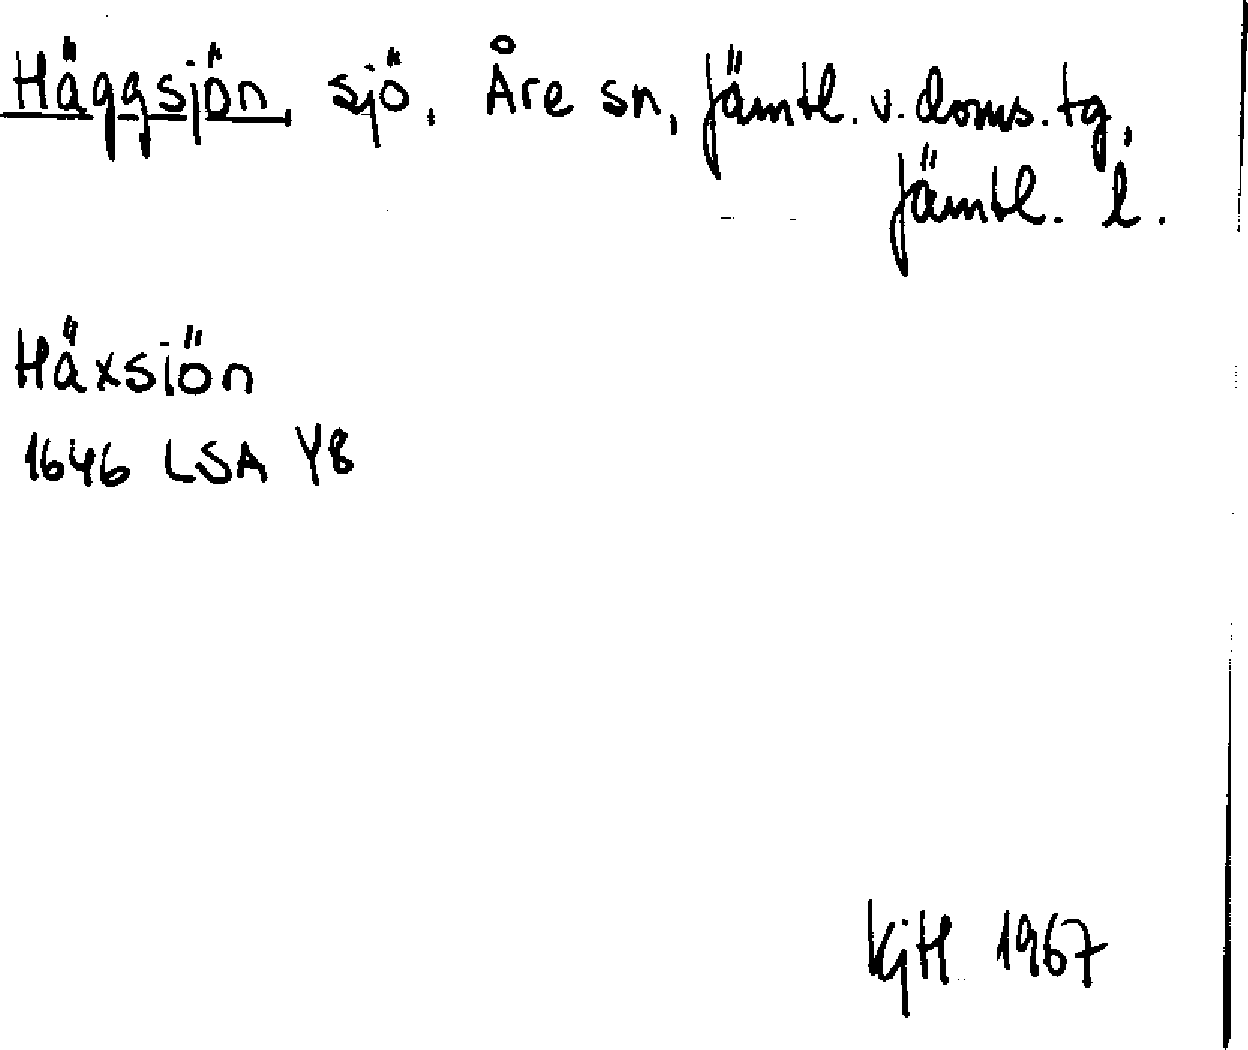 Häggsjön, sjö, Åre sn, Jämtl. v. doms. tg,
Jämtl. l.
Häxsiön
1646 LSA Y8
KjH 1967